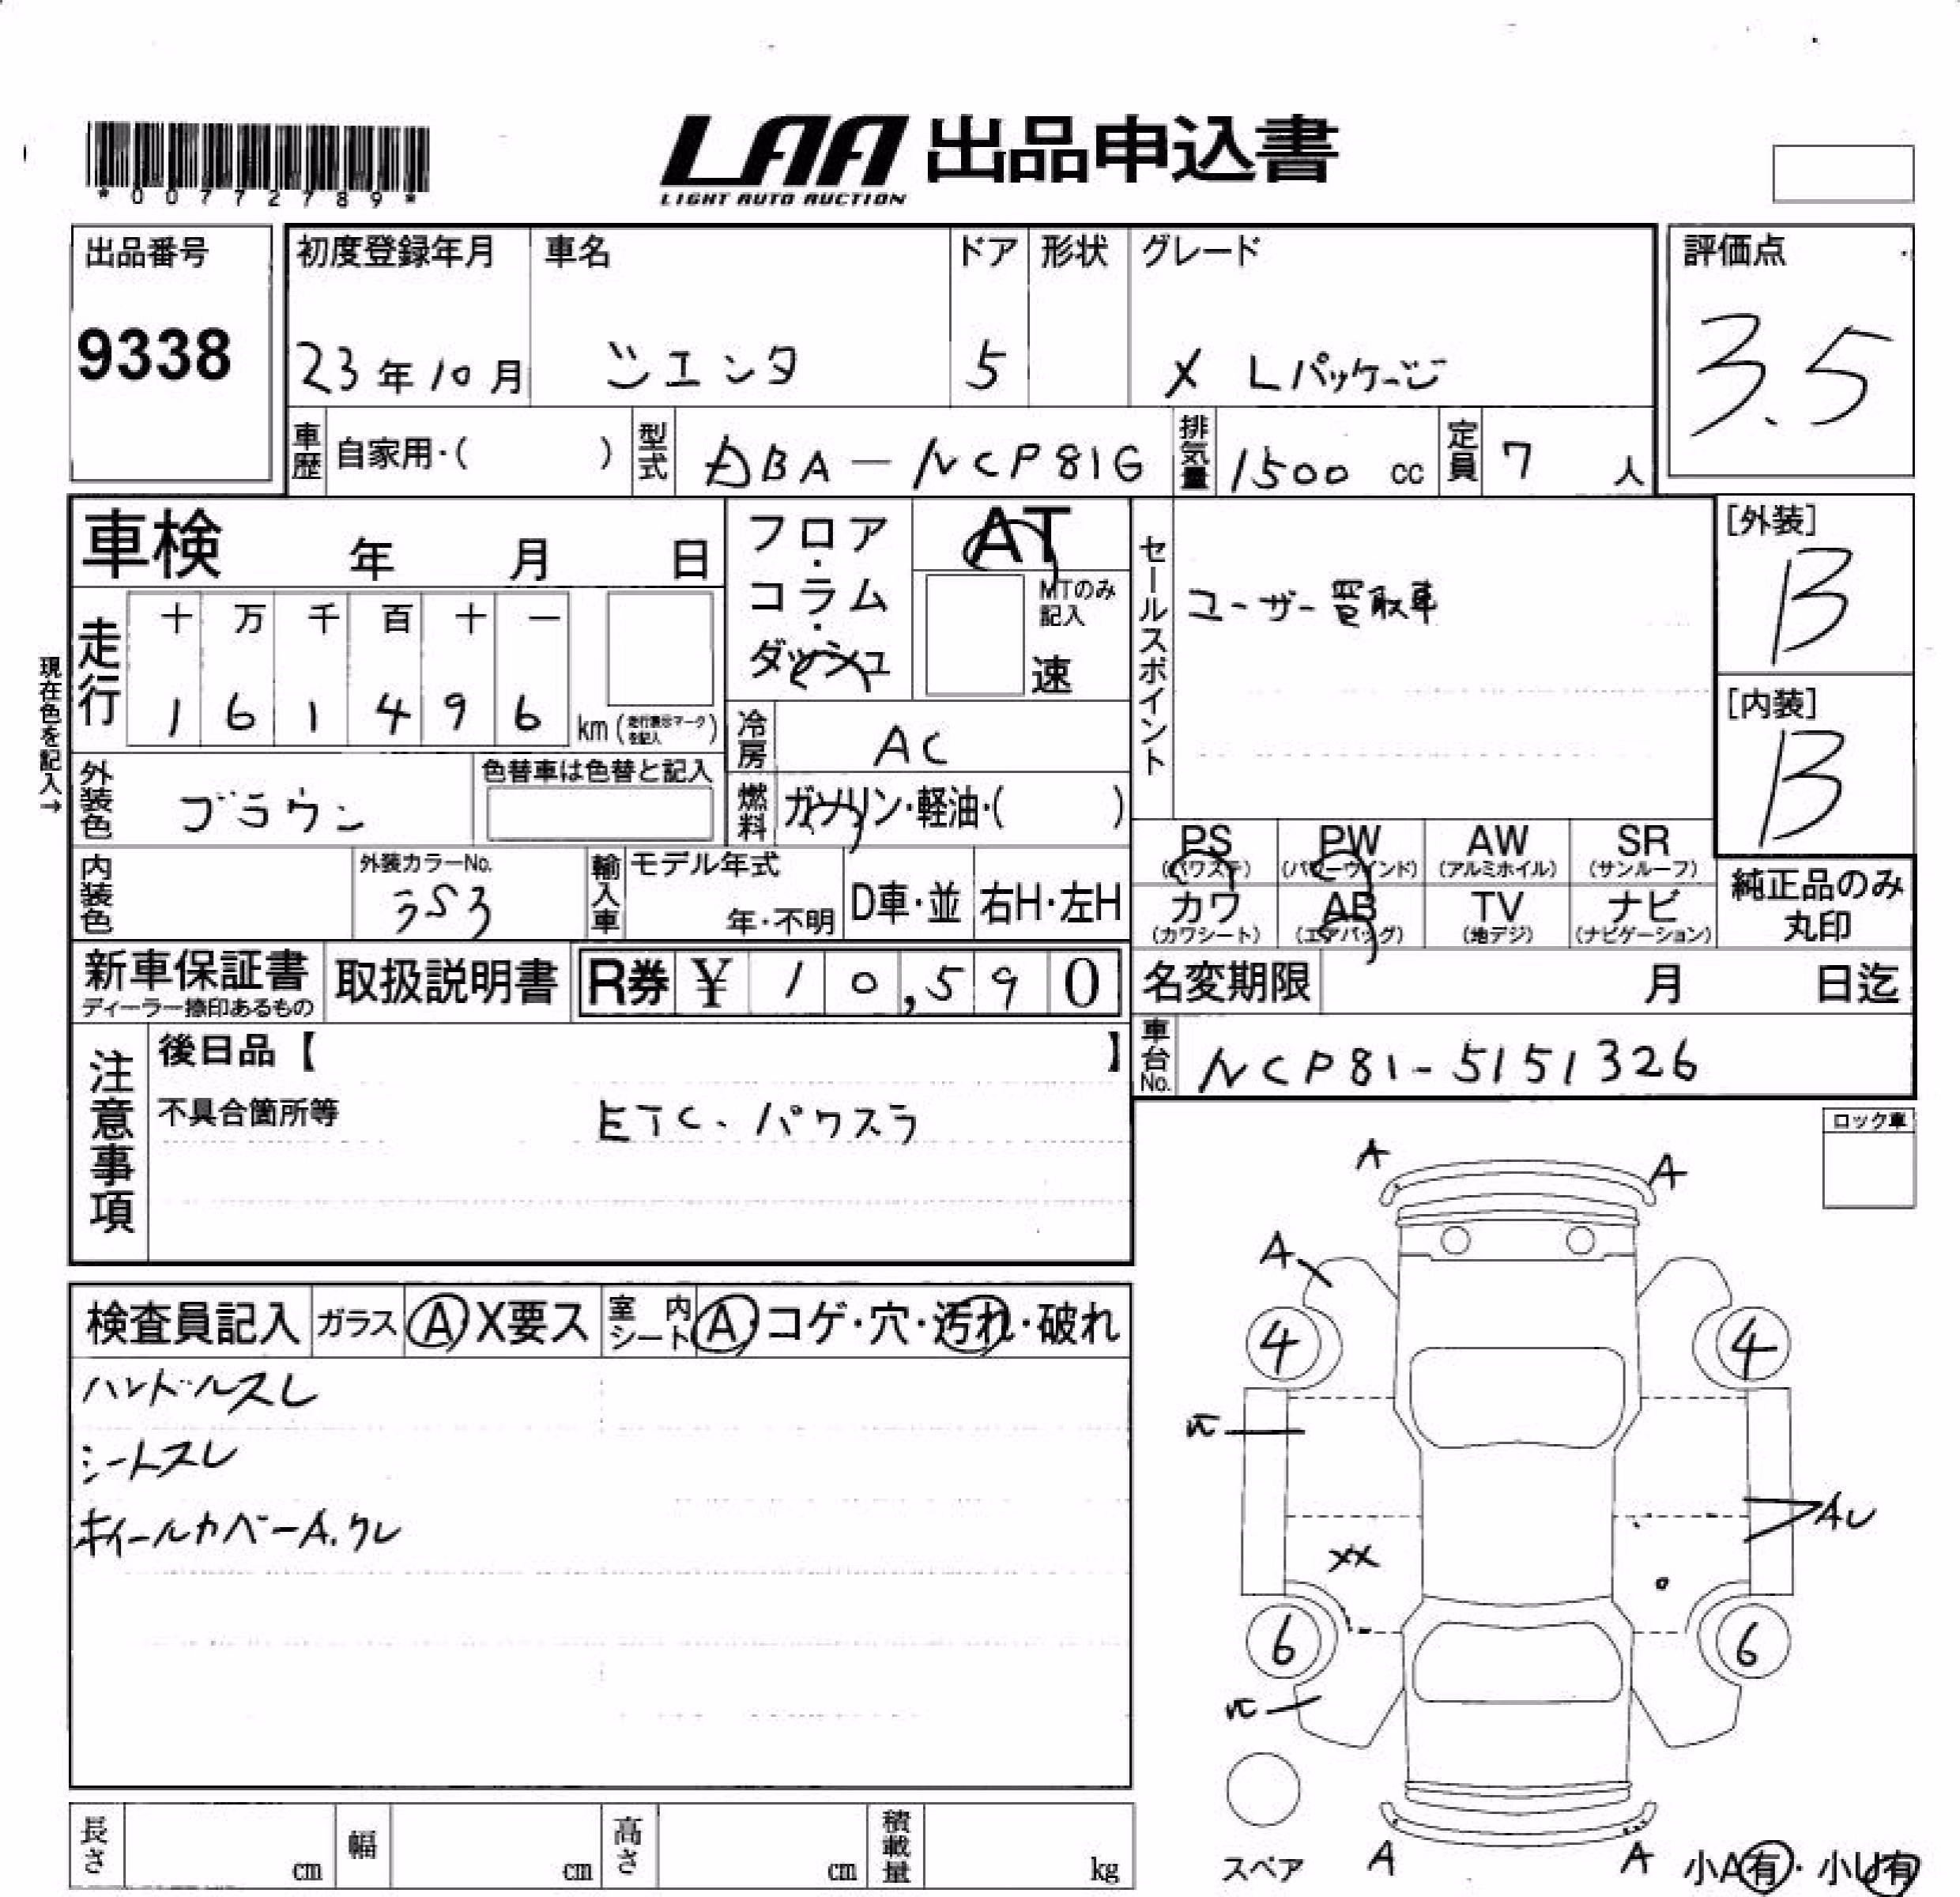 *00772789*
LAA 出品申込書
LIGHT AUTO AUCTION
出品番号
9338
初度登録年月
23年10月
車名
シエンタ
ドア
5
形状
グレード
X Lパッケージ
評価点
3.5
車歴 自家用・( )
型式 DBA-NCP81G
排気量 1500 cc
定員 7 人
車検 年 月 日
フロア・コラム・ダッシュ
AT
MTのみ記入
速
セールスポイント
ユーザー買取車
[外装]
B
[内装]
B
現在色を記入→
走行
十 万 千 百 十 一
1 6 1 4 9 6
km (走行表示マークを記入)
冷房 AC
外装色 ブラウン
色替車は色替と記入
燃料 ガソリン・軽油・( )
内装色
外装カラーNo.
輸入車
モデル年式
年・不明
D車・並
右H・左H
PS (パワステ)
PW (パワーウインド)
AW (アルミホイル)
SR (サンルーフ)
カワ (カワシート)
AB (エアバッグ)
TV (地デジ)
ナビ (ナビゲーション)
純正品のみ丸印
新車保証書
ディーラー捺印あるもの
取扱説明書
R券 ¥ 10,590
名変期限 月 日迄
車台No. NCP81-5151326
注意事項
後日品【 】
不具合箇所等
ETC・パワスラ
ロック車
検査員記入
ガラス A X要ス
室内シート A・コゲ・穴・汚れ・破れ
ハンドルスレ
シートスレ
ホイールカバーA.クレ
A
A
A
4
4
AU
XX
6
6
スペア
A
A
小A有・小U有
長さ cm
幅 cm
高さ cm
積載量 kg